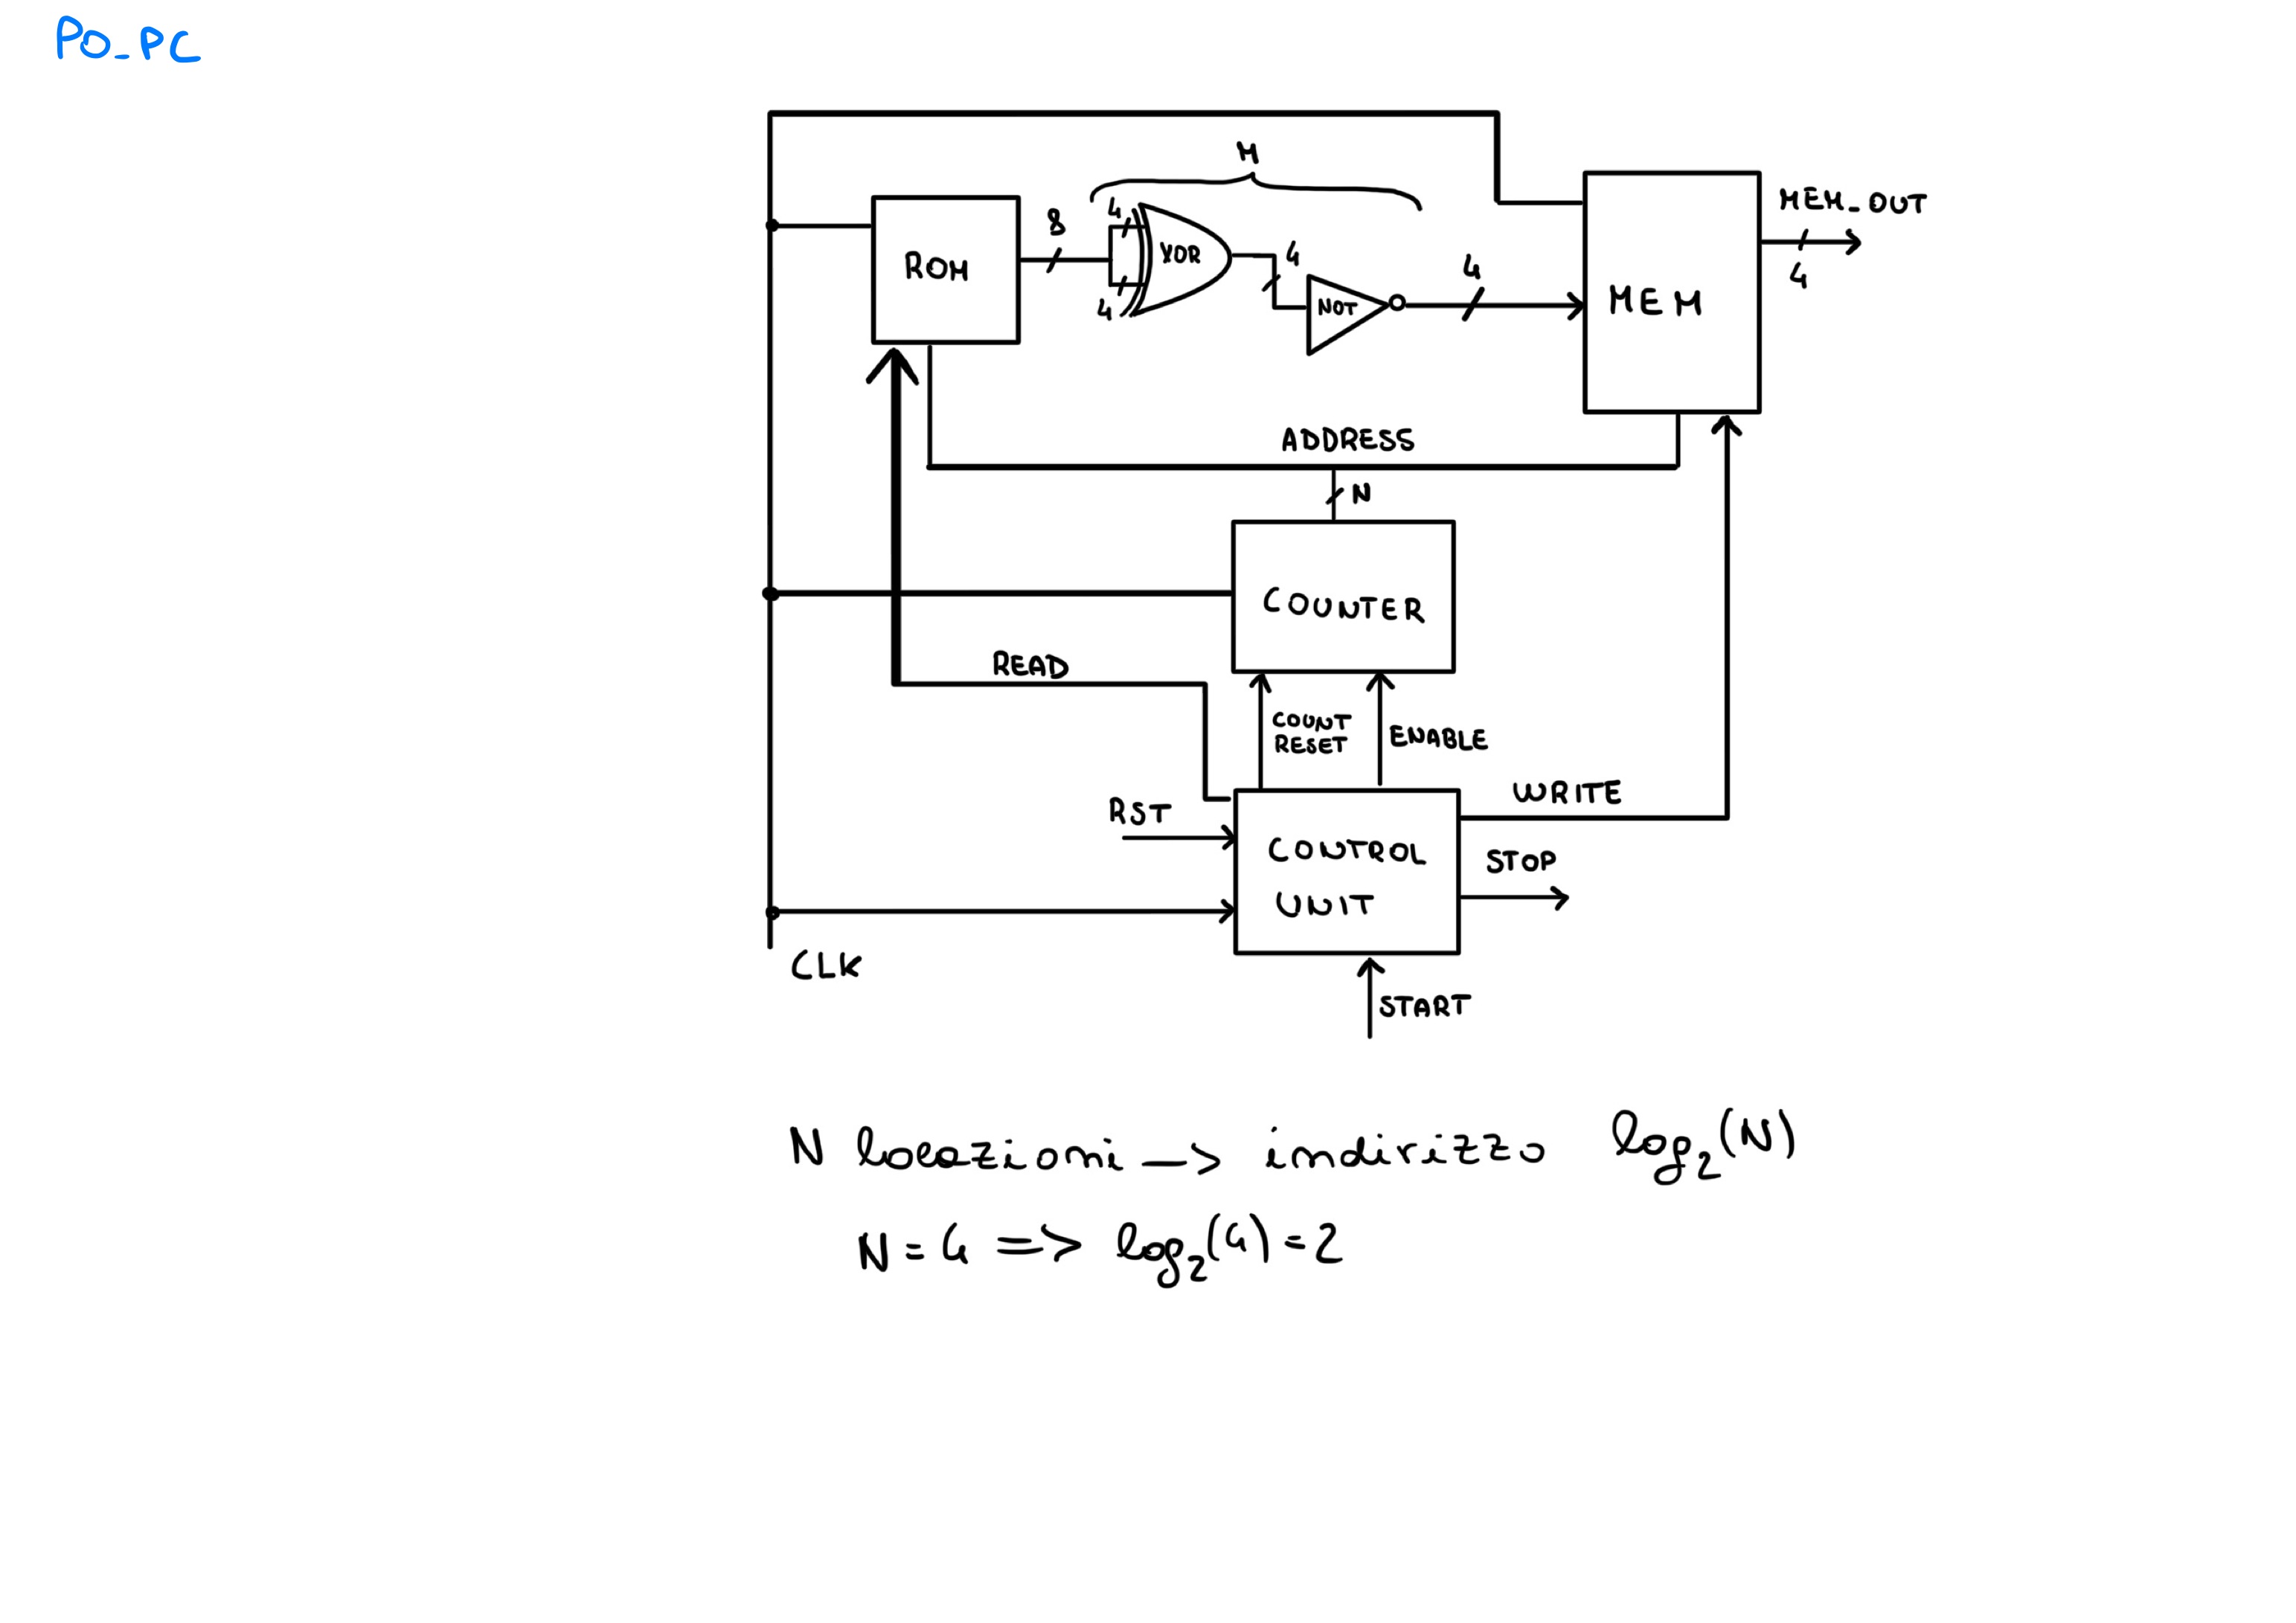 PO_PC
M
8
4
4
XOR
4
NOT
4
ROM
MEM
MEM_OUT
4
ADDRESS
N
COUNTER
READ
COUNT
RESET
ENABLE
WRITE
RST
CONTROL
UNIT
STOP
CLK
START
N locazioni -> indirizzo log₂(N)
N = 4 => log₂(4) = 2